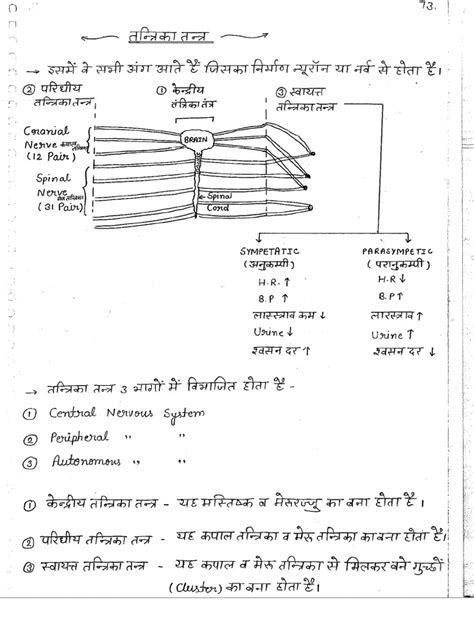 93.
तन्त्रिका तन्त्र
→ इसमें वे सभी अंग आते हैं जिसका निर्माण न्यूरॉन या नर्व से होता है।
② परिघीय तन्त्रिका तन्त्र
① केन्द्रीय तंत्रिका तंत्र
③ स्वायत्त तन्त्रिका तन्त्र
Cranial Nerve कपाल तन्त्रिका (12 Pair)
BRAIN
Spinal Nerve मेरु तन्त्रिका (31 Pair)
Spinal Cord
SYMPETATIC
(अनुकम्पी)
H.R. ↑
B.P ↑
लारस्त्राव कम ↓
Urine ↓
श्वसन दर ↑
PARASYMPETIC
(परानुकम्पी)
H.R ↓
B.P ↑
लारस्त्राव ↑
Urine ↑
श्वसन दर ↓
→ तन्त्रिका तन्त्र 3 भागों में विभाजित होता है -
① Central Nervous System
② Peripheral " "
③ Autonomous " "
① केन्द्रीय तन्त्रिका तन्त्र - यह मस्तिष्क व मेरुरज्जु का बना होता है।
② परिघीय तन्त्रिका तन्त्र - यह कपाल तन्त्रिका व मेरु तन्त्रिका का बना होता है।
③ स्वायत्त तन्त्रिका तन्त्र - यह कपाल व मेरु तन्त्रिका से मिलकर बने गुच्छों
(Cluster) का बना होता है।